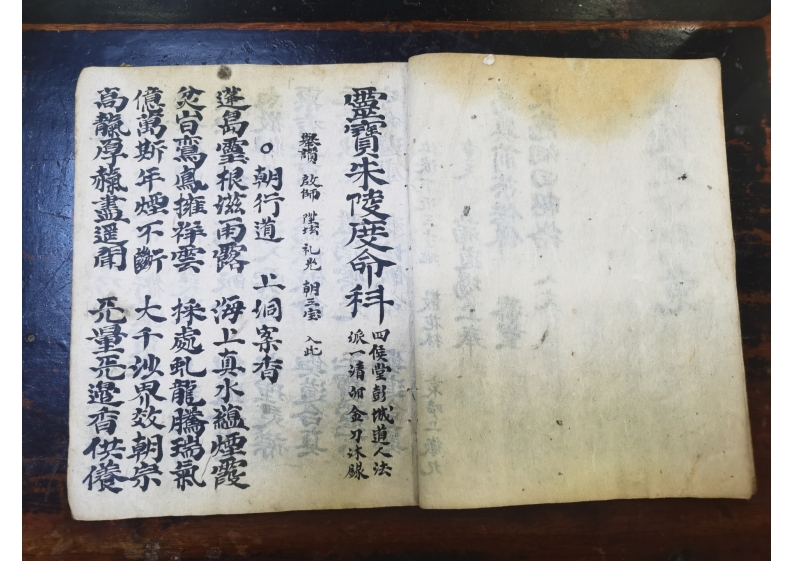 靈寶朱陵度命科
四侯堂彭城道人法
派一清 金刀沐錄
舉讃 啟師 陞坛 礼光 朝三宝 入此
朝行道 上洞案香
蓬島靈根滋雨露 海上真水蘊煙霞
焚台鸞鳳擁祥雲 採處虬龍騰瑞氣
億萬斯年煙不斷 大千沙界效朝宗
高靝厚 盡遥聞 旡量旡邉香供養